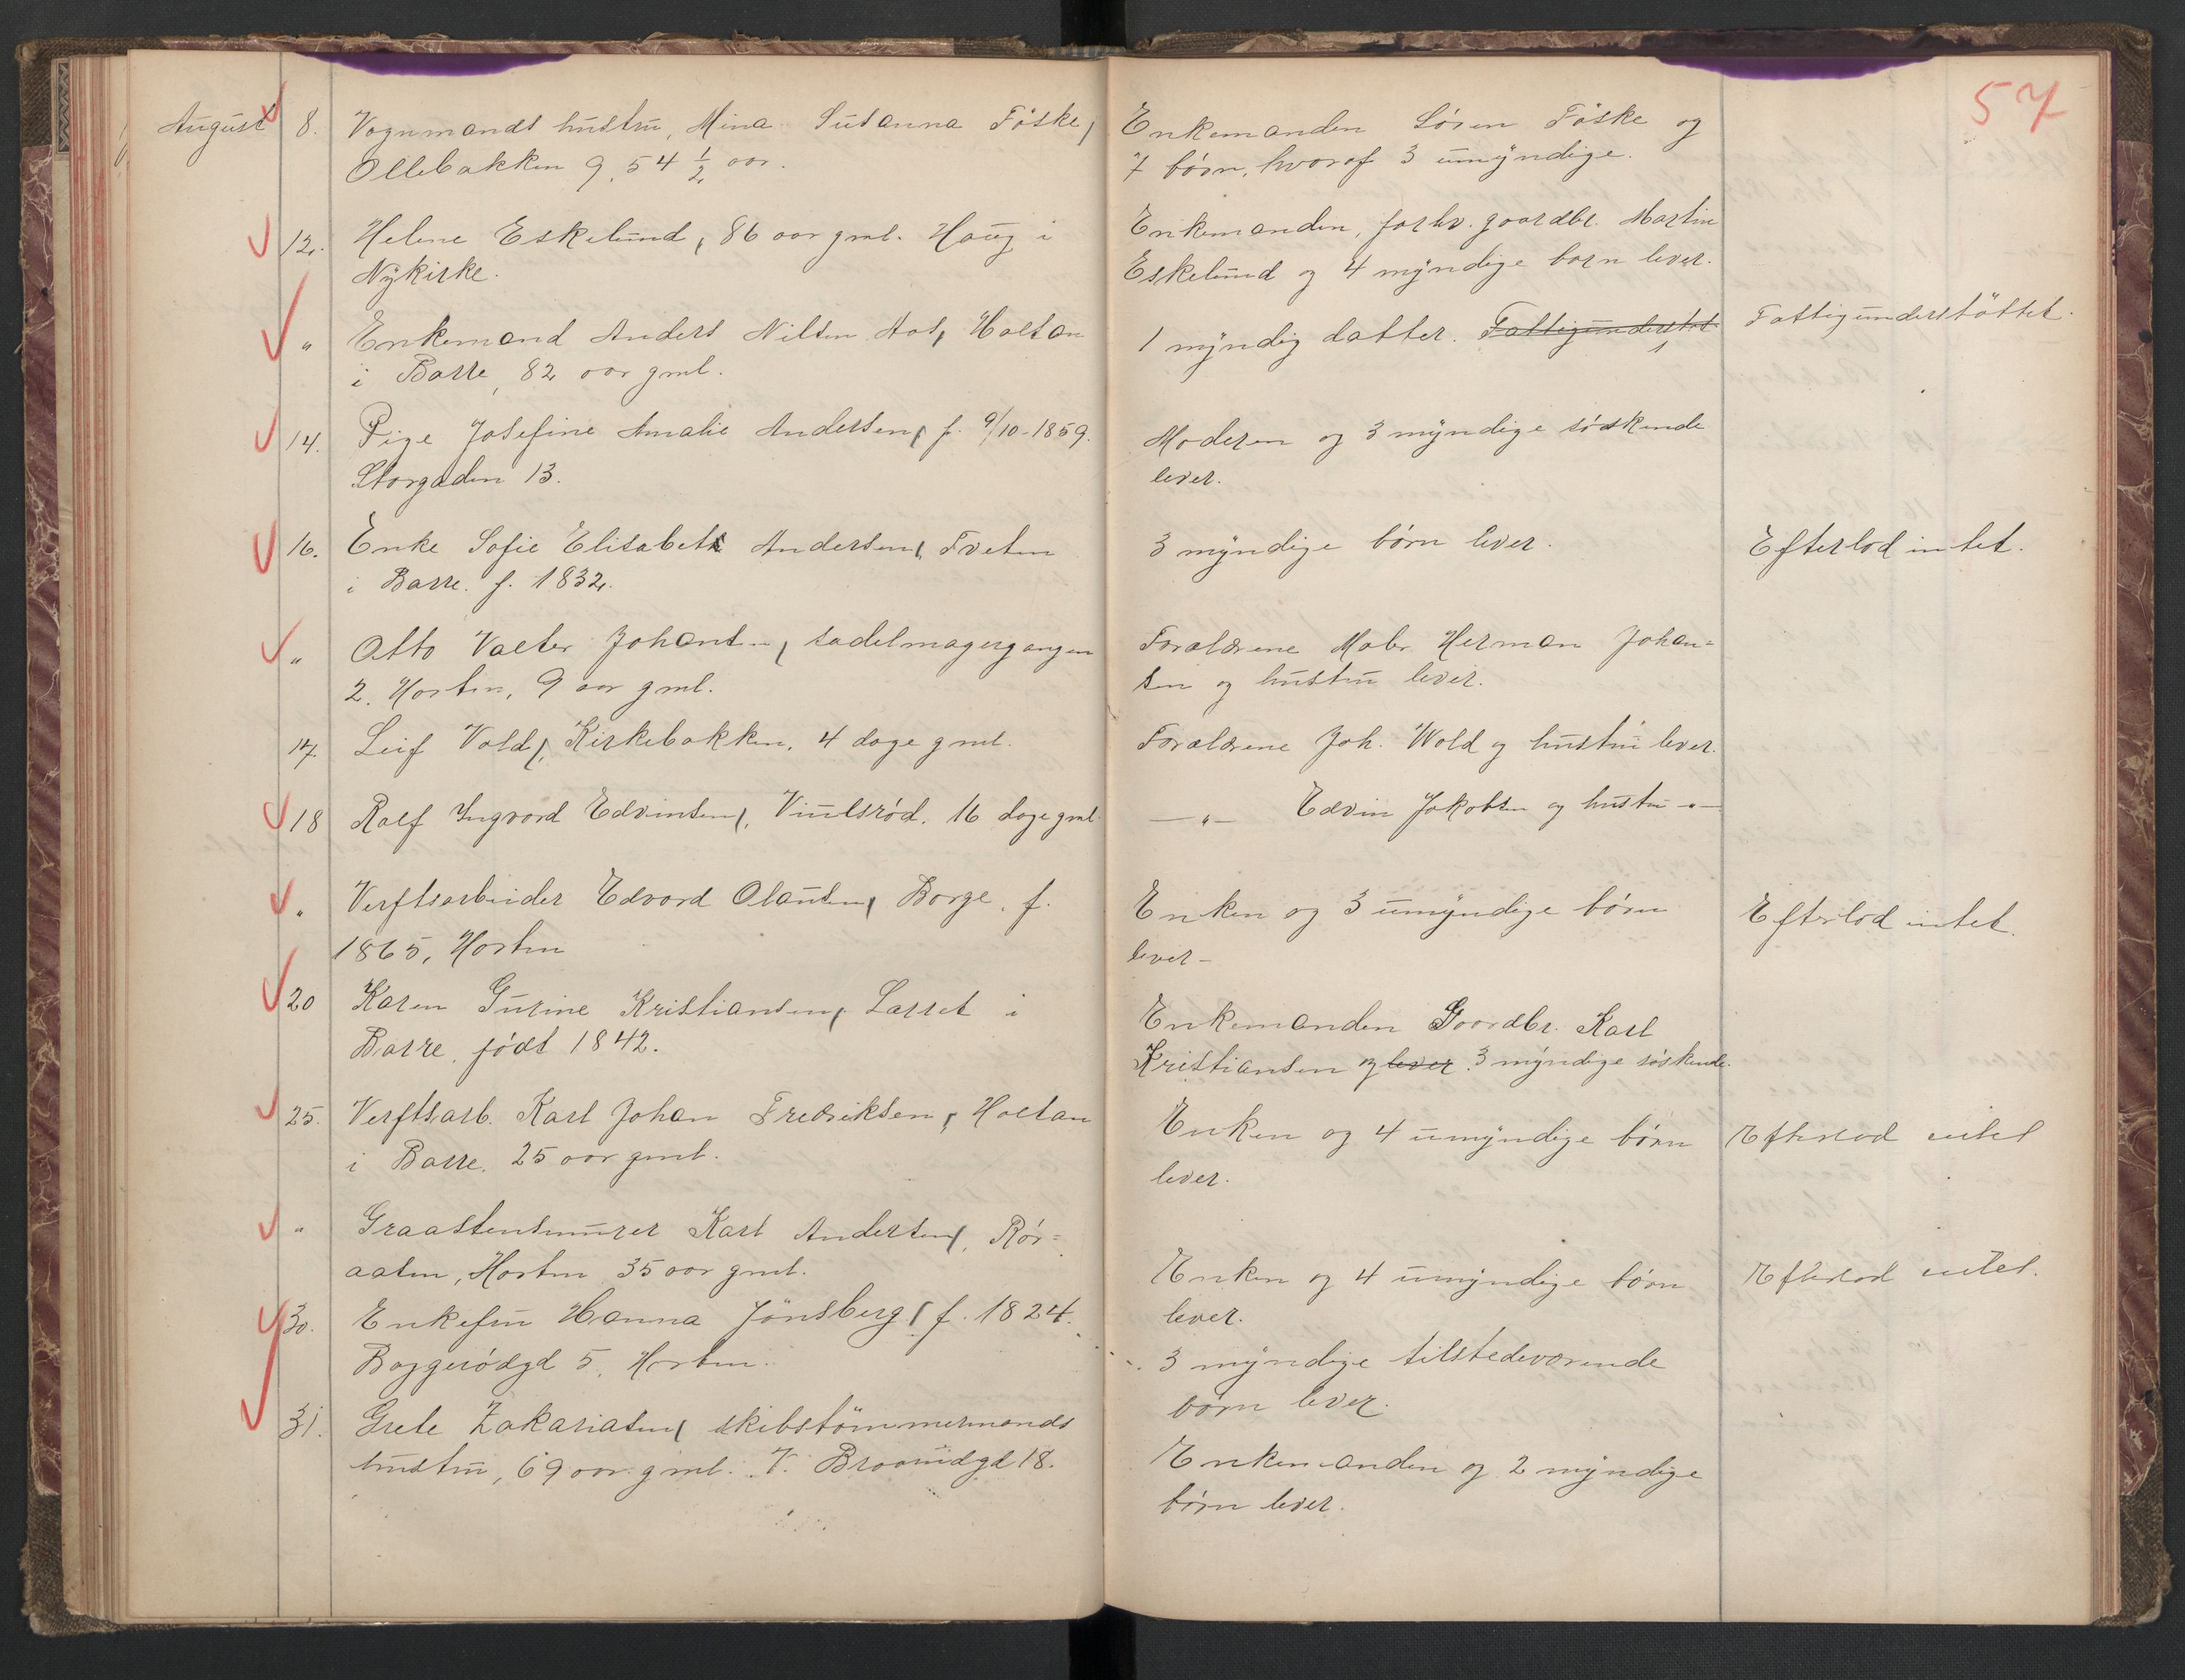 57
August 8. Vognmands hustru, Mina Susanna Føske,
Ollebakken 9, 54 1/2 aar.
Enkemanden Søren Føske og
7 børn, hvoraf 3 umyndige.
12. Helene Eskelund, 86 aar gml. Haug i
Nykirke.
Enkemanden, forhv. gaardbr. Martin
Eskelund og 4 myndige børn lever.
" Enkemand Anders Nilsen Aas, Holtan
i Borre, 82 aar gml.
1 myndig datter. Fattigunderstøt
Fattigunderstøttet.
14. Pige Josefine Amalie Andersen, f. 9/10-1859.
Storgaden 13.
Moderen og 3 myndige søskende
lever.
16. Enke Sofie Elisabeth Andersen, Tveten
i Borre. f. 1832.
3 myndige børn lever.
Efterlod intet.
" Otto Valter Johansen, sadelmagergangen
2. Horten, 9 aar gml.
Forældrene Mabr. Herman Johan=
sen og hustru lever.
17. Leif Vold, Kirkebakken, 4 dage gml.
Forældrene Joh. Wold og hustru lever.
18 Ralf Ingvard Edvinsen, Viulsrød. 16 dage gml.
— " — Edvin Jakobsen og hustru — " —
" Verftsarbeider Edvard Olausen, Borge, f.
1865, Horten
Enken og 3 umyndige børn
lever -
Efterlod intet.
20 Karen Gurine Kristiansen, Sarret i
Borre, født 1842.
Enkemanden Gaardbr. Karl
Kristiansen og lever 3 myndige søskende.
25. Verftsarb. Karl Johan Fredriksen, Holtan
i Borre. 25 aar gml.
Enken og 4 umyndige børn
lever.
Efterlod intet
" Graastensmurer Karl Andersen, Rør=
aaten, Horten 35 aar gml.
Enken og 4 umyndige børn
lever.
Efterlod intet.
30. Enkefru Hanna Jønsberg, f. 1824.
Baggerødgd 5, Horten.
3 myndige tilstedeværende
børn lever.
31. Grete Zakariasen, skibstømmermands
hustru, 69 aar gml. V. Braarudgd 18.
Enkemanden og 2 myndige
børn lever.